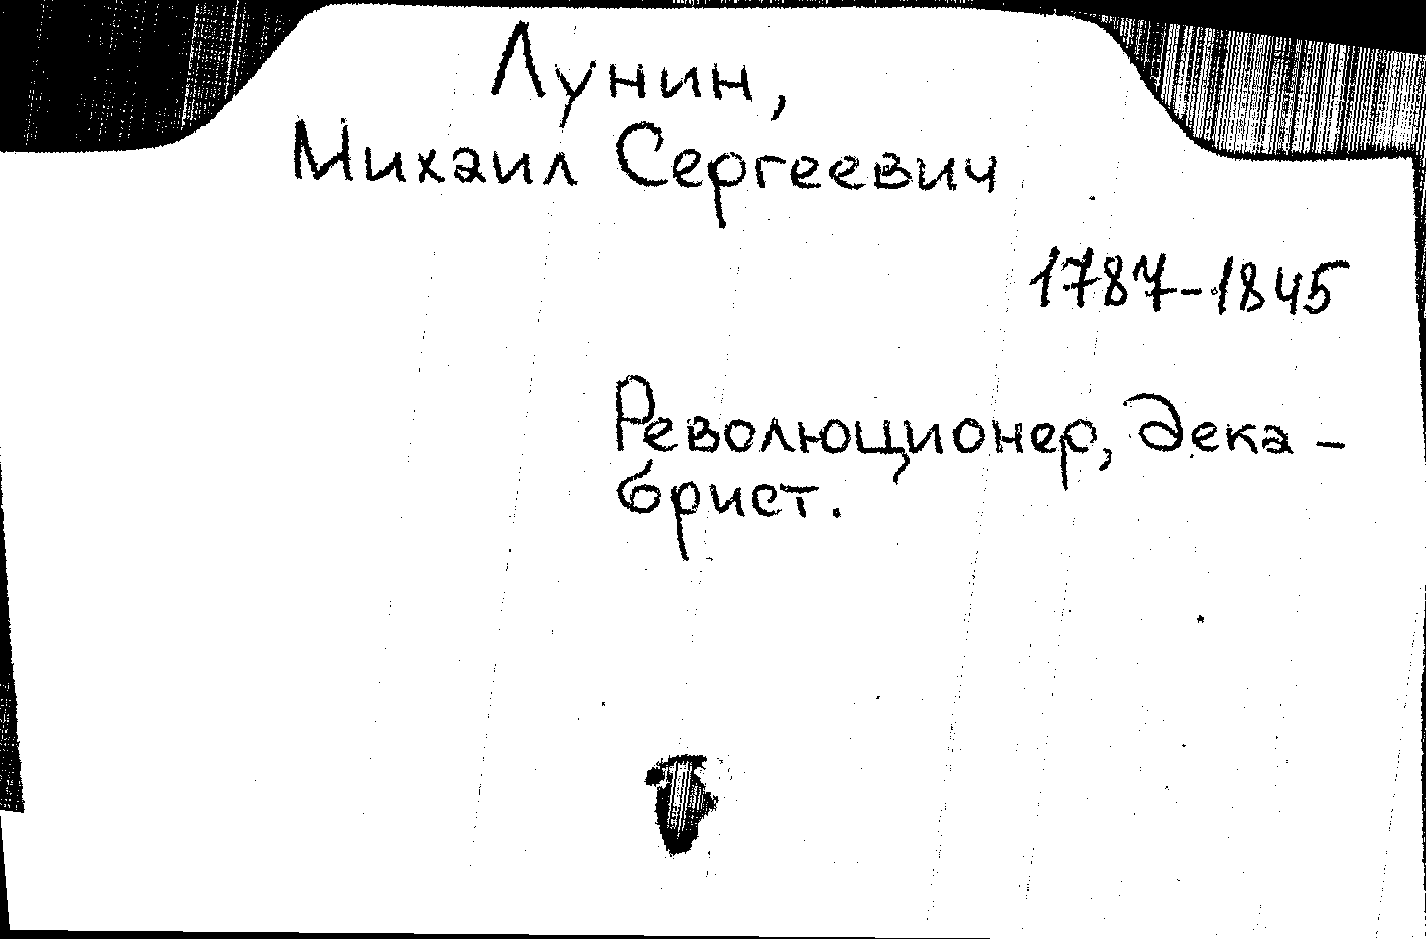 Лунин,
Михаил Сергеевич
1787-1845
Революционер, дека-
брист.